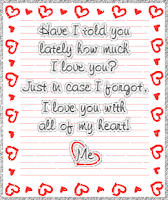 Have I told you
lately how much
I love you?
Just in case I forgot,
I love you with
all of my heart!
Me